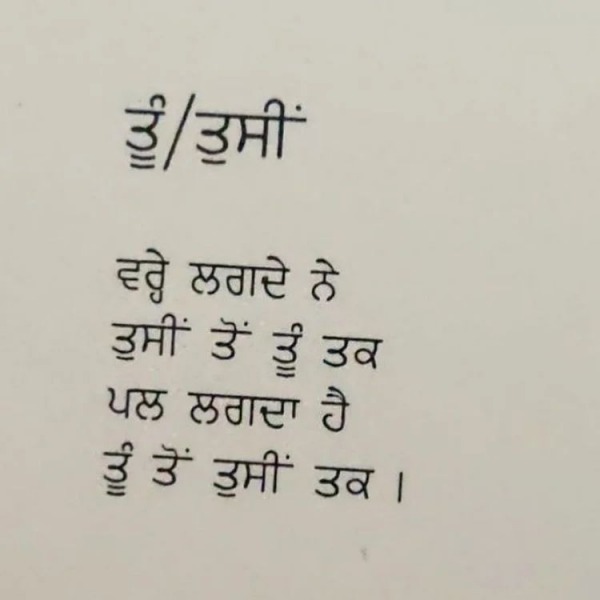 ਤੂੰ/ਤੁਸੀਂ
ਵਰ੍ਹੇ ਲਗਦੇ ਨੇ
ਤੁਸੀਂ ਤੋਂ ਤੂੰ ਤਕ
ਪਲ ਲਗਦਾ ਹੈ
ਤੂੰ ਤੋਂ ਤੁਸੀਂ ਤਕ ।